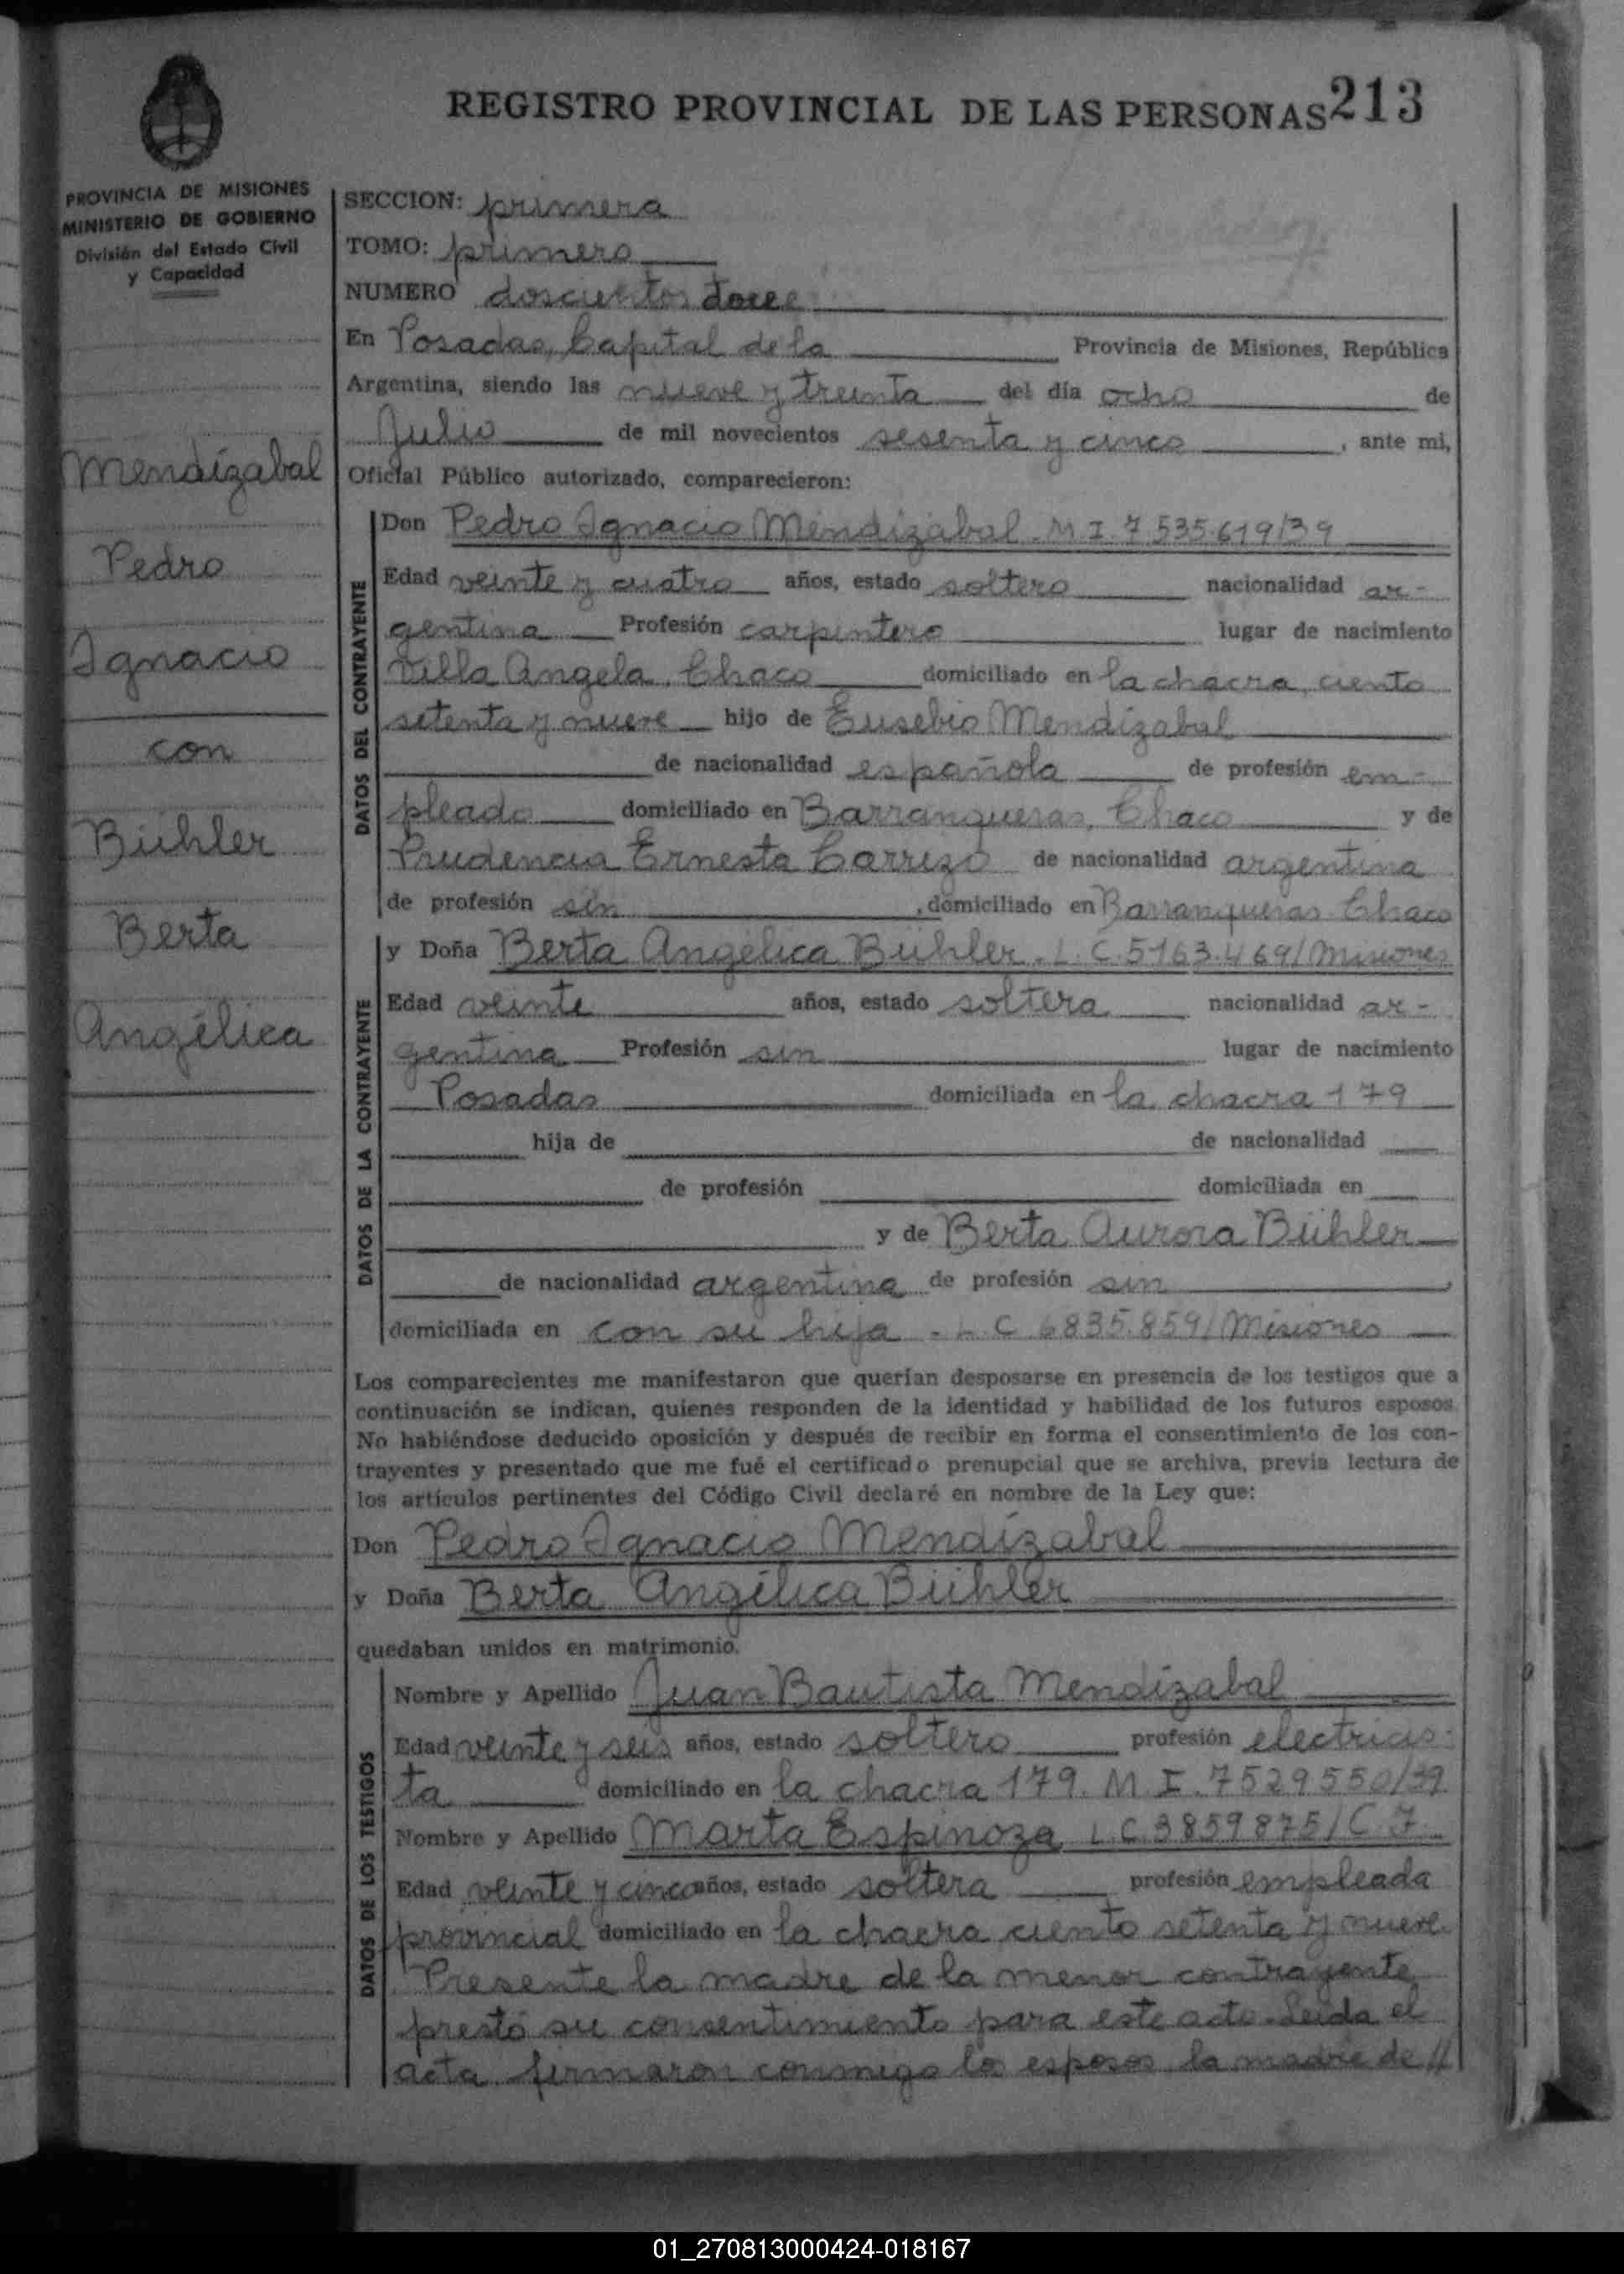 REGISTRO PROVINCIAL DE LAS PERSONAS 213
PROVINCIA DE MISIONES
MINISTERIO DE GOBIERNO
División del Estado Civil
y Capacidad
Mendízabal
Pedro
Ignacio
con
Bühler
Berta
Angélica
SECCION: primera
TOMO: primero
NUMERO doscientos doce
En Posadas, Capital de la Provincia de Misiones, República
Argentina, siendo las nueve y treinta del día ocho de
Julio de mil novecientos sesenta y cinco, ante mi,
Oficial Público autorizado, comparecieron:
DATOS DEL CONTRAYENTE
Don Pedro Ignacio Mendízabal. M. I. 7.535.619/39
Edad veinte y cuatro años, estado soltero nacionalidad ar-
gentina Profesión carpintero lugar de nacimiento
Villa Angela, Chaco domiciliado en la chacra ciento
setenta y nueve hijo de Eusebio Mendízabal
de nacionalidad española de profesión em-
pleado domiciliado en Barranqueras, Chaco y de
Prudencia Ernesta Carrizo de nacionalidad argentina
de profesión sin, domiciliado en Barranqueras Chaco
DATOS DE LA CONTRAYENTE
y Doña Berta Angélica Bühler. L. C. 5163.469/Misiones
Edad veinte años, estado soltera nacionalidad ar-
gentina Profesión sin lugar de nacimiento
Posadas domiciliada en la chacra 179
hija de de nacionalidad
de profesión domiciliada en
y de Berta Aurora Bühler
de nacionalidad argentina de profesión sin,
domiciliada en con su hija. L. C 6835.859/Misiones
Los comparecientes me manifestaron que querían desposarse en presencia de los testigos que a
continuación se indican, quienes responden de la identidad y habilidad de los futuros esposos.
No habiéndose deducido oposición y después de recibir en forma el consentimiento de los con-
trayentes y presentado que me fué el certificado prenupcial que se archiva, previa lectura de
los artículos pertinentes del Código Civil declaré en nombre de la Ley que:
Don Pedro Ignacio Mendízabal
y Doña Berta Angélica Bühler
quedaban unidos en matrimonio.
DATOS DE LOS TESTIGOS
Nombre y Apellido Juan Bautista Mendízabal
Edad veinte y seis años, estado soltero profesión electricis-
ta domiciliado en la chacra 179. M. I. 7529550/39
Nombre y Apellido Marta Espinoza L. C. 3859875/C. F.
Edad veinte y cinco años, estado soltera profesión empleada
provincial domiciliado en la chacra ciento setenta y nueve
Presente la madre de la menor contrayente
prestó su consentimiento para este acto. Leída el
acta firmaron conmigo los esposos la madre de //
01_270813000424-018167